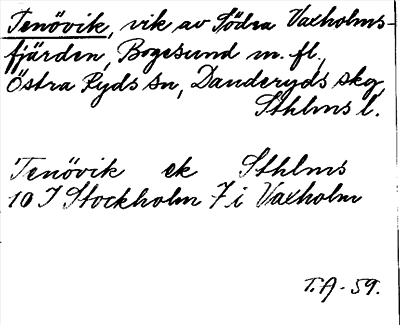 Tenövik, vik av Södra Vaxholms-
fjärden, Bogesund m. fl.,
Östra Ryds sn, Danderyds skg,
Sthlms l.
Tenövik ek Sthlms
10 I Stockholm 7 i Vaxholm
T.A - 59.